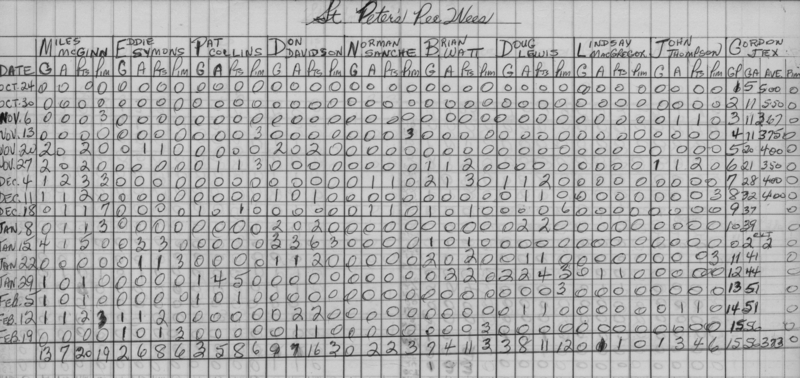 St. Peter's Pee Wees
MILES MCGINN EDDIE SYMONS PAT COLLINS DON DAVIDSON NORMAN SANCHE BRIAN WATT DOUG LEWIS LINDSAY MACGREGOR JOHN THOMPSON GORDON JEX
DATE G A Pts Pim G A Pts Pim G A Pts Pim G A Pts Pim G A Pts Pim G A Pts Pim G A Pts Pim G A Pts Pim G A Pts Pim GP GA AVE Pim
OCT. 24 0 0 0 0 0 0 0 0 0 0 0 0 0 0 0 0 0 0 0 0 0 0 0 0 0 0 0 0 0 0 0 0 0 0 0 0 1 5 500 0
OCT. 30 0 0 0 0 0 0 0 0 0 0 0 0 0 0 0 0 0 0 0 0 0 0 0 0 0 0 0 0 0 0 0 0 0 0 0 0 2 11 550 0
NOV. 6 0 0 0 3 0 0 0 0 0 0 0 0 0 0 0 0 0 0 0 0 0 0 0 0 0 0 0 0 0 0 0 0 0 1 1 0 3 11 367 0
NOV. 13 0 0 0 0 0 0 0 0 0 0 0 3 0 0 0 0 0 0 0 3 0 0 0 0 0 0 0 0 0 0 0 0 0 0 0 0 4 11 375 0
NOV. 20 2 0 2 0 0 1 1 0 0 0 0 0 2 0 2 0 0 0 0 0 0 0 0 0 0 0 0 0 0 0 0 0 0 0 0 0 5 20 400 0
NOV. 27 2 0 2 0 0 0 0 0 0 1 1 3 0 0 0 0 0 0 0 0 1 1 2 0 0 0 0 0 0 0 0 0 1 1 2 0 6 21 350 0
DEC. 4 1 2 3 3 0 0 0 0 0 0 0 0 0 0 0 0 0 1 1 0 2 1 3 0 1 1 2 0 0 0 0 0 0 0 0 0 7 28 400 0
DEC. 11 1 1 2 0 0 0 0 0 0 0 0 0 1 0 1 0 0 0 0 0 0 0 0 0 0 1 1 0 0 0 0 0 0 0 0 3 8 32 400 0
DEC. 18 0 1 1 7 0 0 0 0 1 0 1 0 0 0 0 0 0 1 1 0 1 0 1 0 0 0 0 6 0 0 0 0 0 0 0 0 9 37
JAN. 8 0 1 1 3 0 0 0 0 0 0 0 0 2 0 2 0 0 0 0 0 0 0 0 0 0 2 2 0 0 0 0 0 0 0 0 0 10 39
JAN 12 4 1 5 0 0 3 3 0 0 0 0 0 3 3 6 3 0 0 0 0 1 0 1 0 0 0 0 0 0 0 0 0 0 0 0 0
JAN 22 0 0 0 0 0 1 1 3 0 0 0 0 1 1 2 0 0 0 0 0 2 0 2 0 0 1 1 0 0 0 0 0 0 0 0 3 11 41
JAN. 29 1 0 1 0 0 0 0 0 1 4 5 0 0 0 0 0 0 0 0 0 0 2 2 0 2 2 4 3 0 1 1 0 0 0 0 0 12 44
FEB. 5 1 0 1 0 0 0 0 0 1 0 1 0 0 0 0 0 0 0 0 0 0 0 0 0 0 0 0 3 0 0 0 0 0 0 0 0 13 51
FEB. 12 1 1 2 3 1 1 2 0 0 0 0 0 0 2 2 0 0 0 0 0 0 0 0 0 0 1 1 0 0 0 0 0 0 1 1 0 14 51
FEB. 19 0 0 0 0 1 0 1 3 0 0 0 0 0 1 1 0 0 0 0 0 0 0 0 3 0 0 0 0 0 0 0 0 0 0 0 0 15 56
13 7 20 19 2 6 8 6 3 5 8 6 9 7 16 3 0 2 2 3 7 4 11 3 3 8 11 12 0 1 1 0 1 3 4 6 15 56 373 0